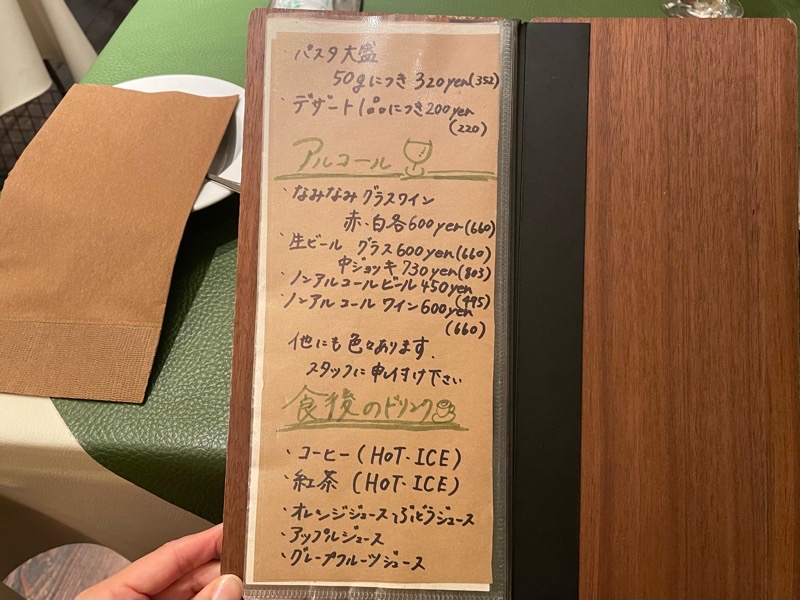 ・パスタ大盛
50gにつき 320yen(352)
・デザート1品につき200yen
(220)
アルコール
・なみなみグラスワイン
赤・白各600yen(660)
・生ビール グラス600yen(660)
中ジョッキ730yen(803)
・ノンアルコールビール450yen
(495)
・ノンアルコールワイン600yen
(660)
他にも色々あります.
スタッフに申し付け下さい
食後のドリンク
・コーヒー(HOT・ICE)
・紅茶 (HOT・ICE)
・オレンジジュース・ぶどうジュース
・アップルジュース
・グレープフルーツジュース